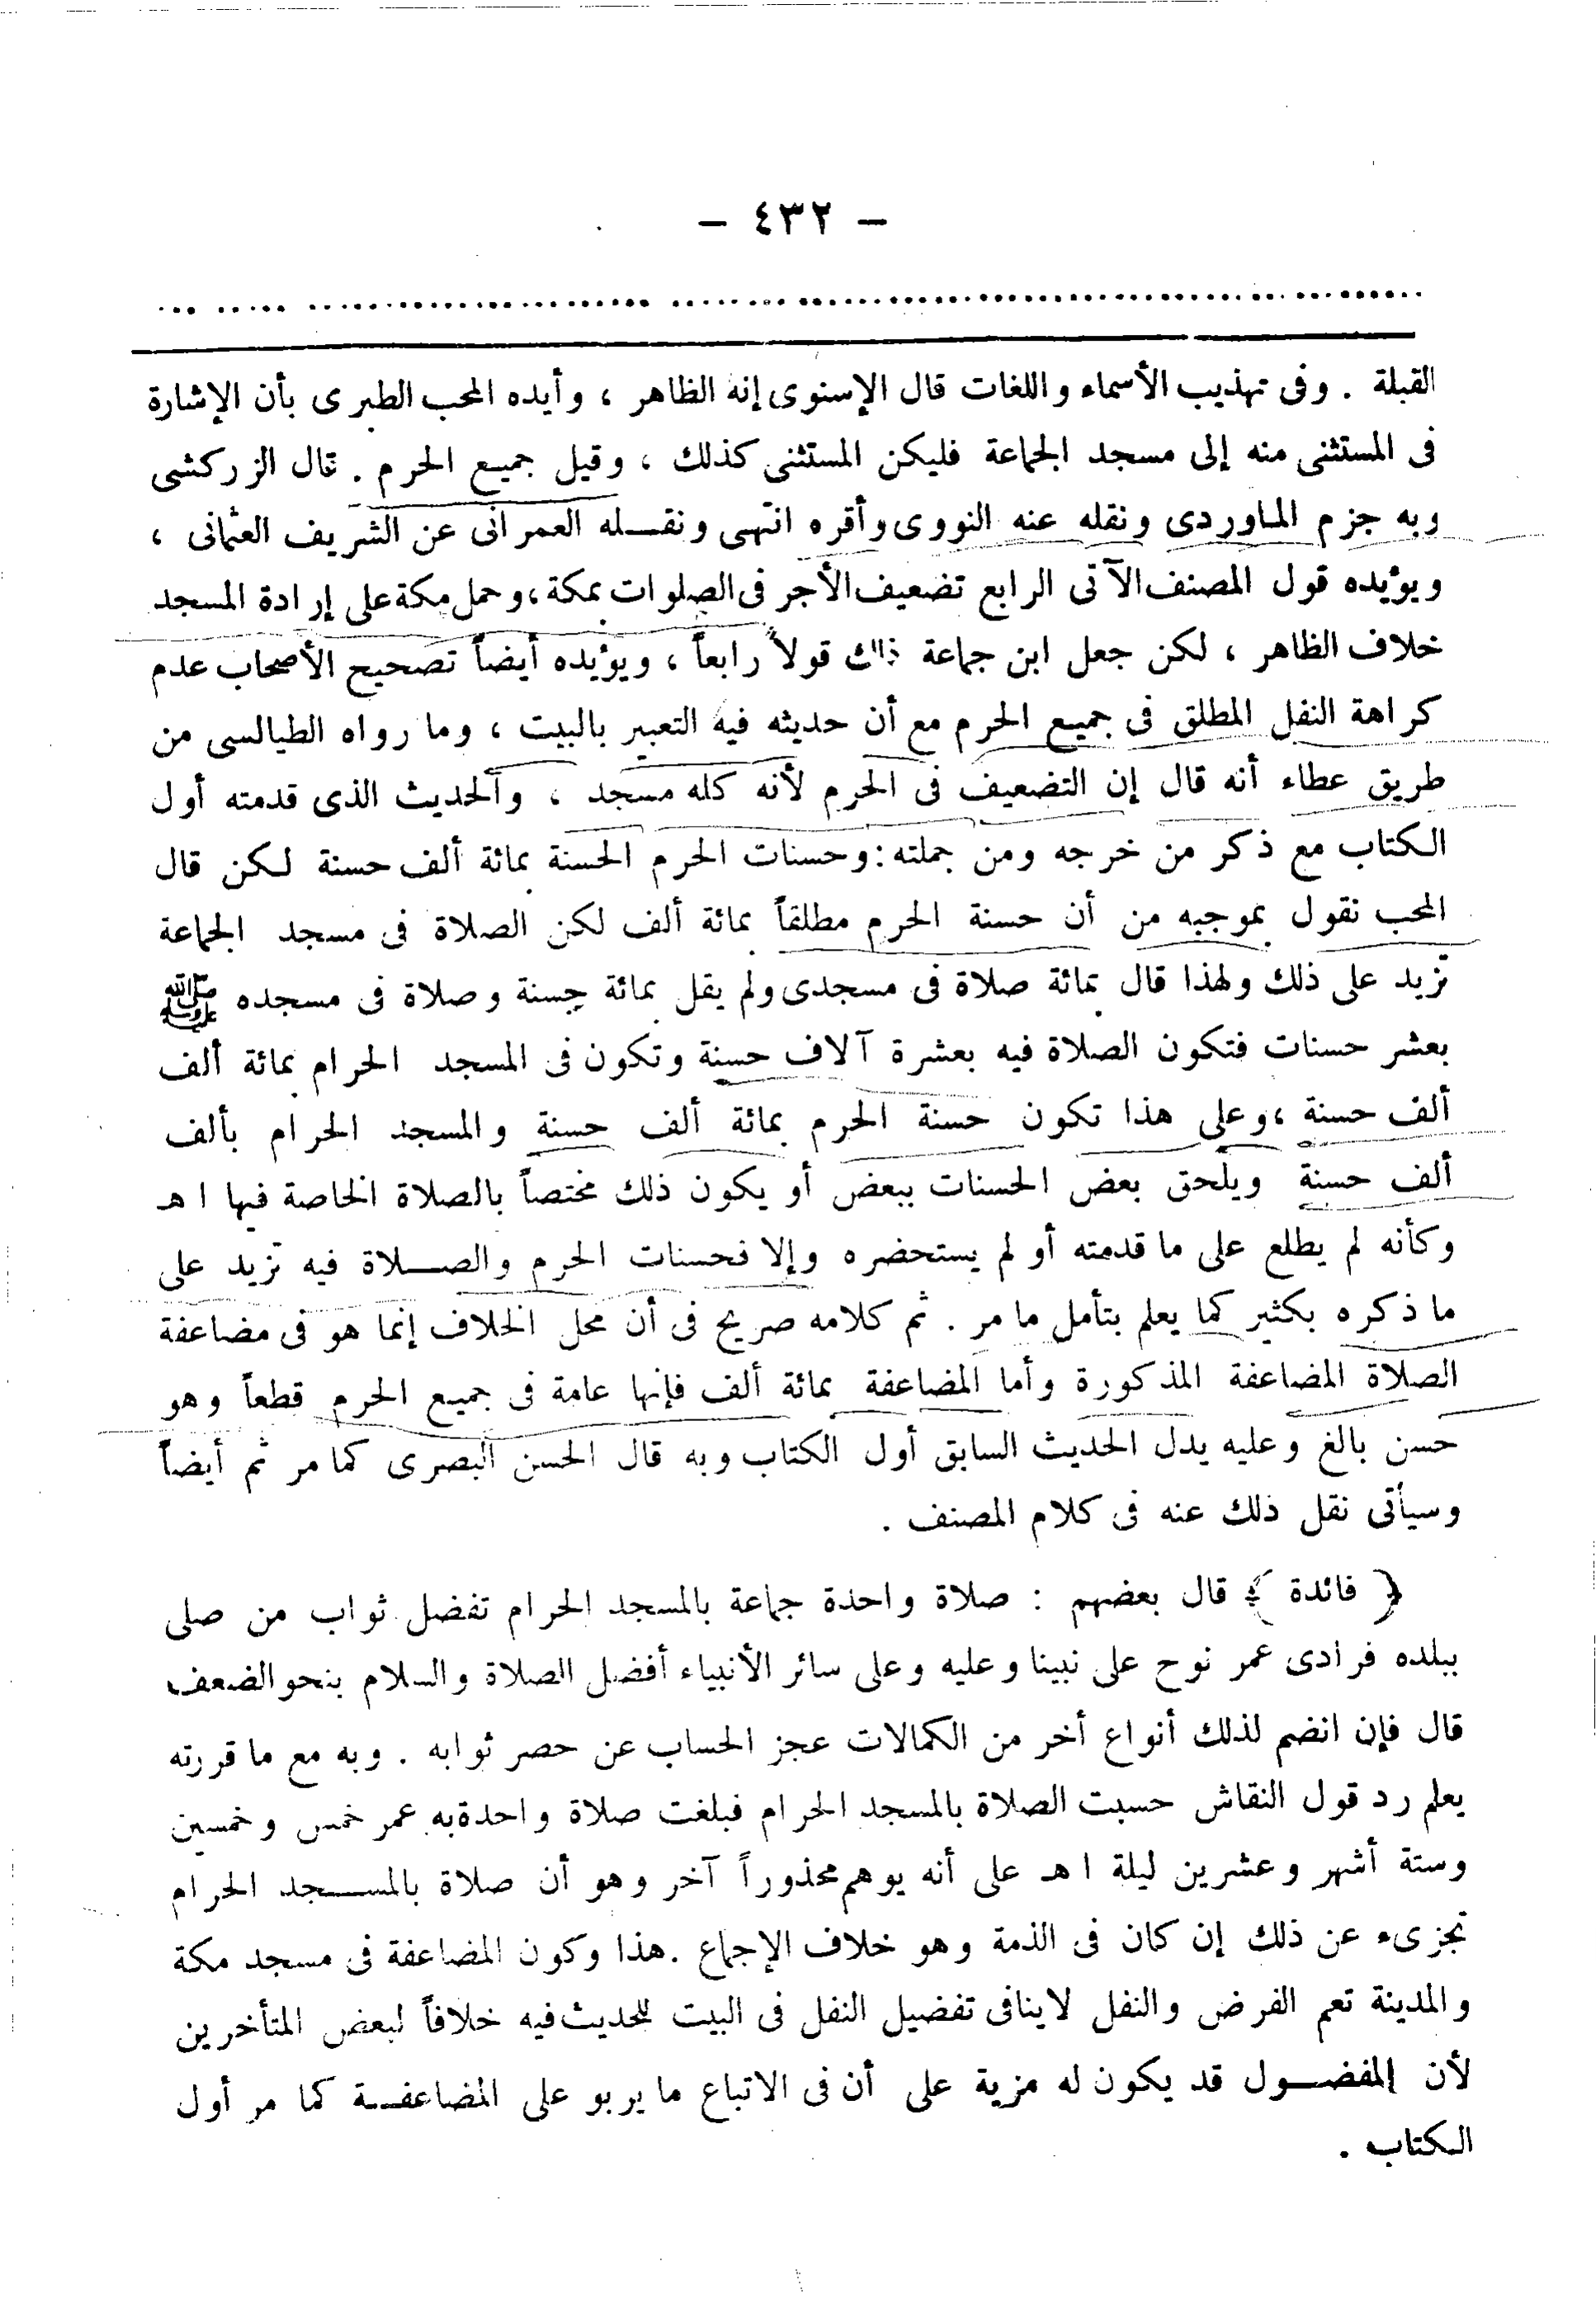 — ٤٣٢ —
القبلة . وفى تهذيب الأسماء واللغات قال الإسنوى إنه الظاهر ، وأيده المحب الطبرى بأن الإشارة
فى المستثنى منه إلى مسجد الجماعة فليكن المستثنى كذلك ، وقيل جميع الحرم . قال الزركشى
وبه جزم الماوردى ونقله عنه النووى وأقره انتهى ونقله العمرانى عن الشريف العثمانى ،
ويؤيده قول المصنف الآتى الرابع تضعيف الأجر فى الصلوات بمكة، وحمل مكة على إرادة المسجد
خلاف الظاهر ، لكن جعل ابن جماعة ذلك قولاً رابعاً ، ويؤيده أيضاً تصحيح الأصحاب عدم
كراهة النفل المطلق فى جميع الحرم مع أن حديثه فيه التعبير بالبيت ، وما رواه الطيالسى من
طريق عطاء أنه قال إن التضعيف فى الحرم لأنه كله مسجد ، والحديث الذى قدمته أول
الكتاب مع ذكر من خرجه ومن جملته: وحسنات الحرم الحسنة بمائة ألف حسنة لكن قال
المحب نقول بموجبه من أن حسنة الحرم مطلقاً بمائة ألف لكن الصلاة فى مسجد الجماعة
تزيد على ذلك ولهذا قال بمائة صلاة فى مسجدى ولم يقل بمائة حسنة وصلاة فى مسجده ﷺ
بعشر حسنات فتكون الصلاة فيه بعشرة آلاف حسنة وتكون فى المسجد الحرام بمائة ألف
ألف حسنة ، وعلى هذا تكون حسنة الحرم بمائة ألف حسنة والمسجد الحرام بألف
ألف حسنة ويلحق بعض الحسنات ببعض أو يكون ذلك مختصاً بالصلاة الخاصة فيها ا هـ
وكأنه لم يطلع على ما قدمته أو لم يستحضره وإلا فحسنات الحرم والصلاة فيه تزيد على
ما ذكره بكثير كما يعلم بتأمل ما مر . ثم كلامه صريح فى أن محل الخلاف إنما هو فى مضاعفة
الصلاة المضاعفة المذكورة وأما المضاعفة بمائة ألف فإنها عامة فى جميع الحرم قطعاً وهو
حسن بالغ وعليه يدل الحديث السابق أول الكتاب وبه قال الحسن البصرى كما مر ثم أيضاً
وسيأتى نقل ذلك عنه فى كلام المصنف .
﴿ فائدة ﴾ قال بعضهم : صلاة واحدة جماعة بالمسجد الحرام تفضل ثواب من صلى
ببلده فرادى عمر نوح على نبينا وعليه وعلى سائر الأنبياء أفضل الصلاة والسلام بنحو الضعف
قال فإن انضم لذلك أنواع أخر من الكمالات عجز الحساب عن حصر ثوابه . وبه مع ما قررته
يعلم رد قول النقاش حسبت الصلاة بالمسجد الحرام فبلغت صلاة واحدة به عمر خمس وخمسين
وستة أشهر وعشرين ليلة ا هـ على أنه يوهم محذوراً آخر وهو أن صلاة بالمسجد الحرام
تجزىء عن ذلك إن كان فى الذمة وهو خلاف الإجماع . هذا وكون المضاعفة فى مسجد مكة
والمدينة تعم الفرض والنفل لاينافى تفضيل النفل فى البيت للحديث فيه خلافاً لبعض المتأخرين
لأن المفضول قد يكون له مزية على أن فى الاتباع ما يربو على المضاعفة كما مر أول
الكتاب .